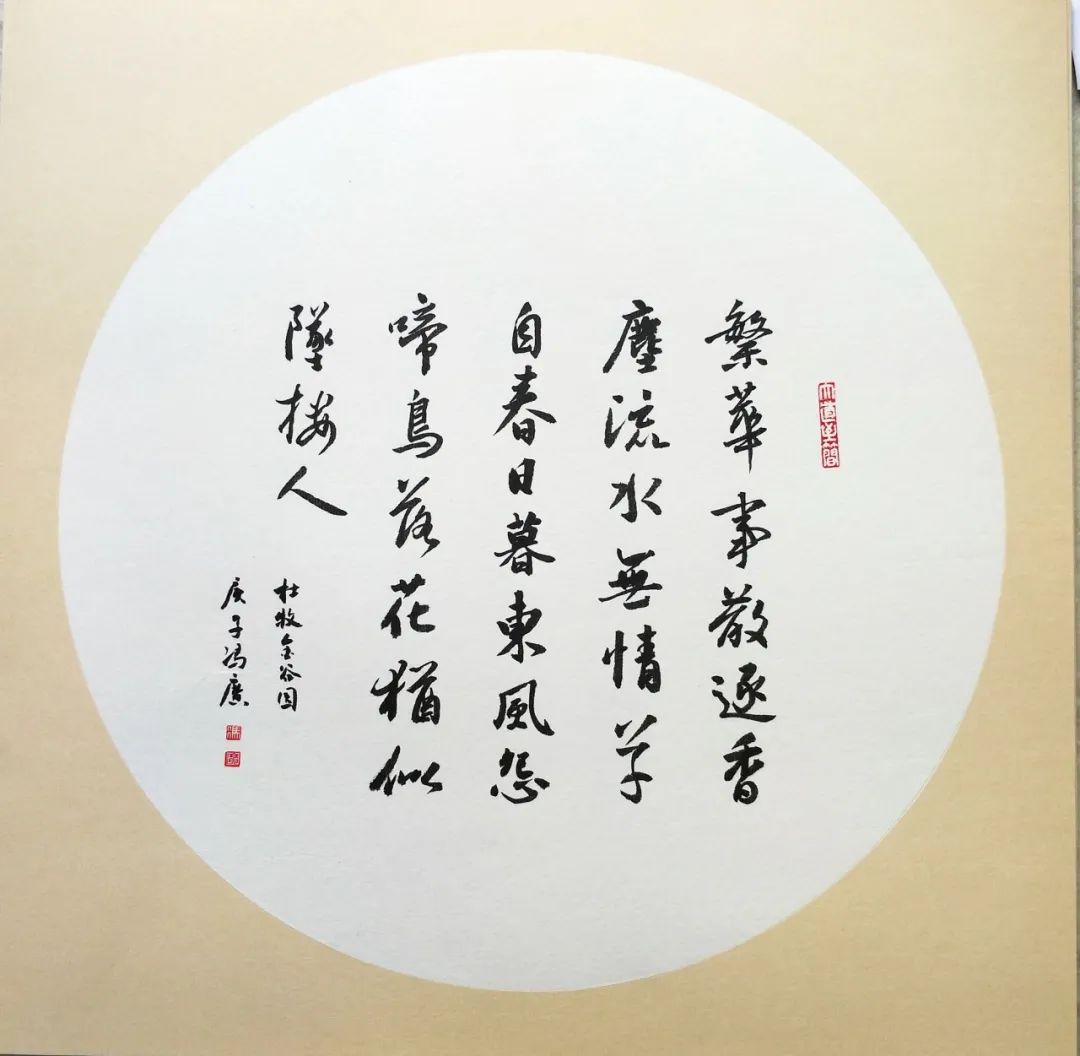 大道至簡
繁華事散逐香
塵流水無情草
自春日暮東風怨
啼鳥落花猶似
墜楼人
杜牧金谷园
庚子冯